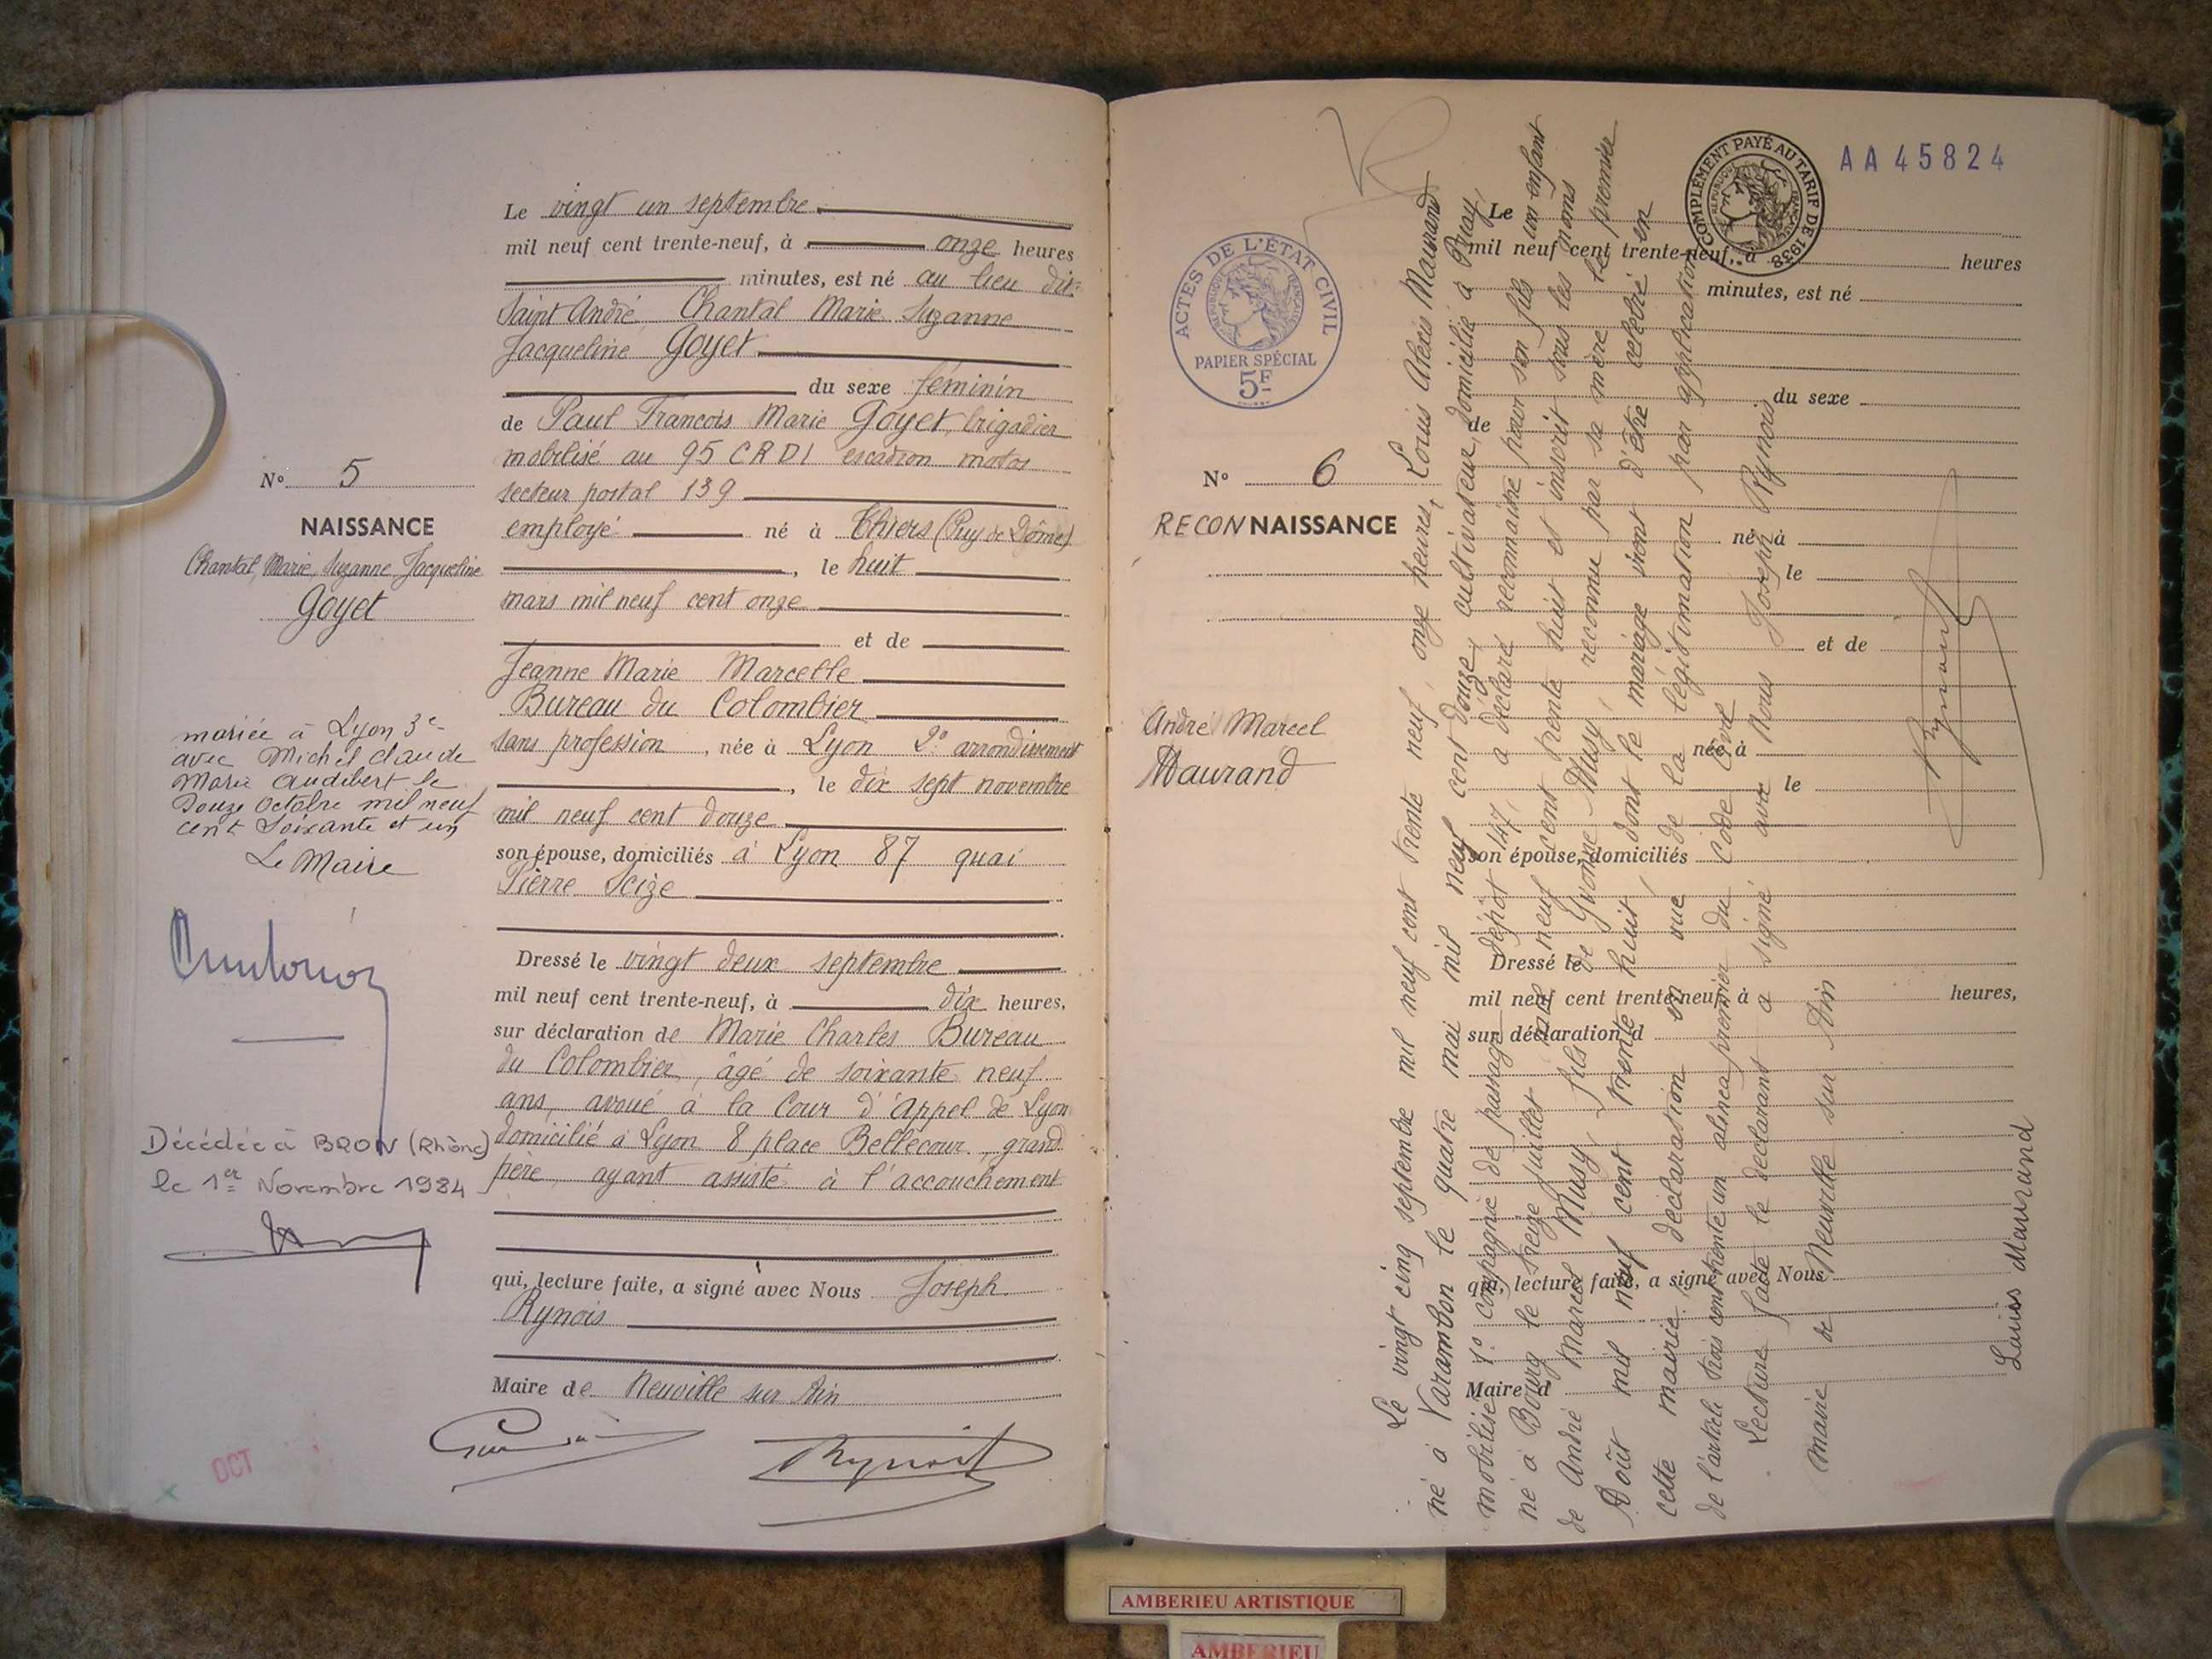 Le vingt un septembre
mil neuf cent trente-neuf, à onze heures
minutes, est né au lieu dit:
Saint André, Chantal Marie Suzanne
Jacqueline Goyet
du sexe féminin
de Paul François Marie Goyet, brigadier
mobilisé au 95 CRDI escadron motos
secteur postal 139
employé né à Thiers (Puy de Dôme)
, le huit
mars mil neuf cent onze
et de
Jeanne Marie Marcelle
Bureau du Colombier
sans profession, née à Lyon 2° arrondissement
, le dix sept novembre
mil neuf cent douze
son épouse, domiciliés à Lyon 87 quai
Pierre Scize
Dressé le vingt deux septembre
mil neuf cent trente-neuf, à dix heures,
sur déclaration de Marie Charles Bureau
du Colombier, âgé de soixante neuf
ans, avoué à la Cour d'Appel de Lyon
domicilié à Lyon 8 place Bellecour, grand
père, ayant assisté à l'accouchement
qui, lecture faite, a signé avec Nous Joseph
Rynois
Maire de Neuville sur Ain
N° 5
NAISSANCE
Chantal, Marie, Suzanne, Jacqueline
Goyet
mariée à Lyon 3e
avec Michel Claude
Marie Audibert le
Douze Octobre mil neuf
cent soixante et un
Le Maire
Décédée à BRON (Rhône)
le 1er Novembre 1984
OCT
AA45824
COMPLÉMENT PAYÉ AU TARIF DE 1938
RÉPUBLIQUE FRANÇAISE
ACTES DE L'ÉTAT CIVIL
RÉPUBLIQUE FRANÇAISE
PAPIER SPÉCIAL
5F
N° 6
RECONNAISSANCE
André Marcel
Maurand
Le
mil neuf cent trente-neuf, à heures
minutes, est né
du sexe
de
né à
le
et de
née à
le
son épouse, domiciliés
Dressé le
mil neuf cent trente-neuf, à heures,
sur déclaration d
qui, lecture faite, a signé avec Nous
Maire d
Le vingt cinq septembre mil neuf cent trente neuf, onze heures, Louis Alexis Maurand
né à Varambon le quatre mai mil neuf cent douze, cultivateur, domicilié à Priay,
mobilisé 1° compagnie de passage dépôt 147, a déclaré reconnaître pour son fils un enfant
né à Bourg le treize Juillet mil neuf cent trente huit et inscrit sous les noms
de André Marcel Musy, fils de Yvonne Musy, reconnu par sa mère le premier
Août mil neuf cent trente huit, dont le mariage vient d'être célébré en
cette mairie. Déclaration en vue de la légitimation par application
de l'article trois cent trente un alinea premier du Code Civil
Lecture faite le déclarant a signé avec Nous Joseph Rynois
maire de Neuville sur Ain
Louis Maurand
AMBERIEU ARTISTIQUE
AMBERIEU